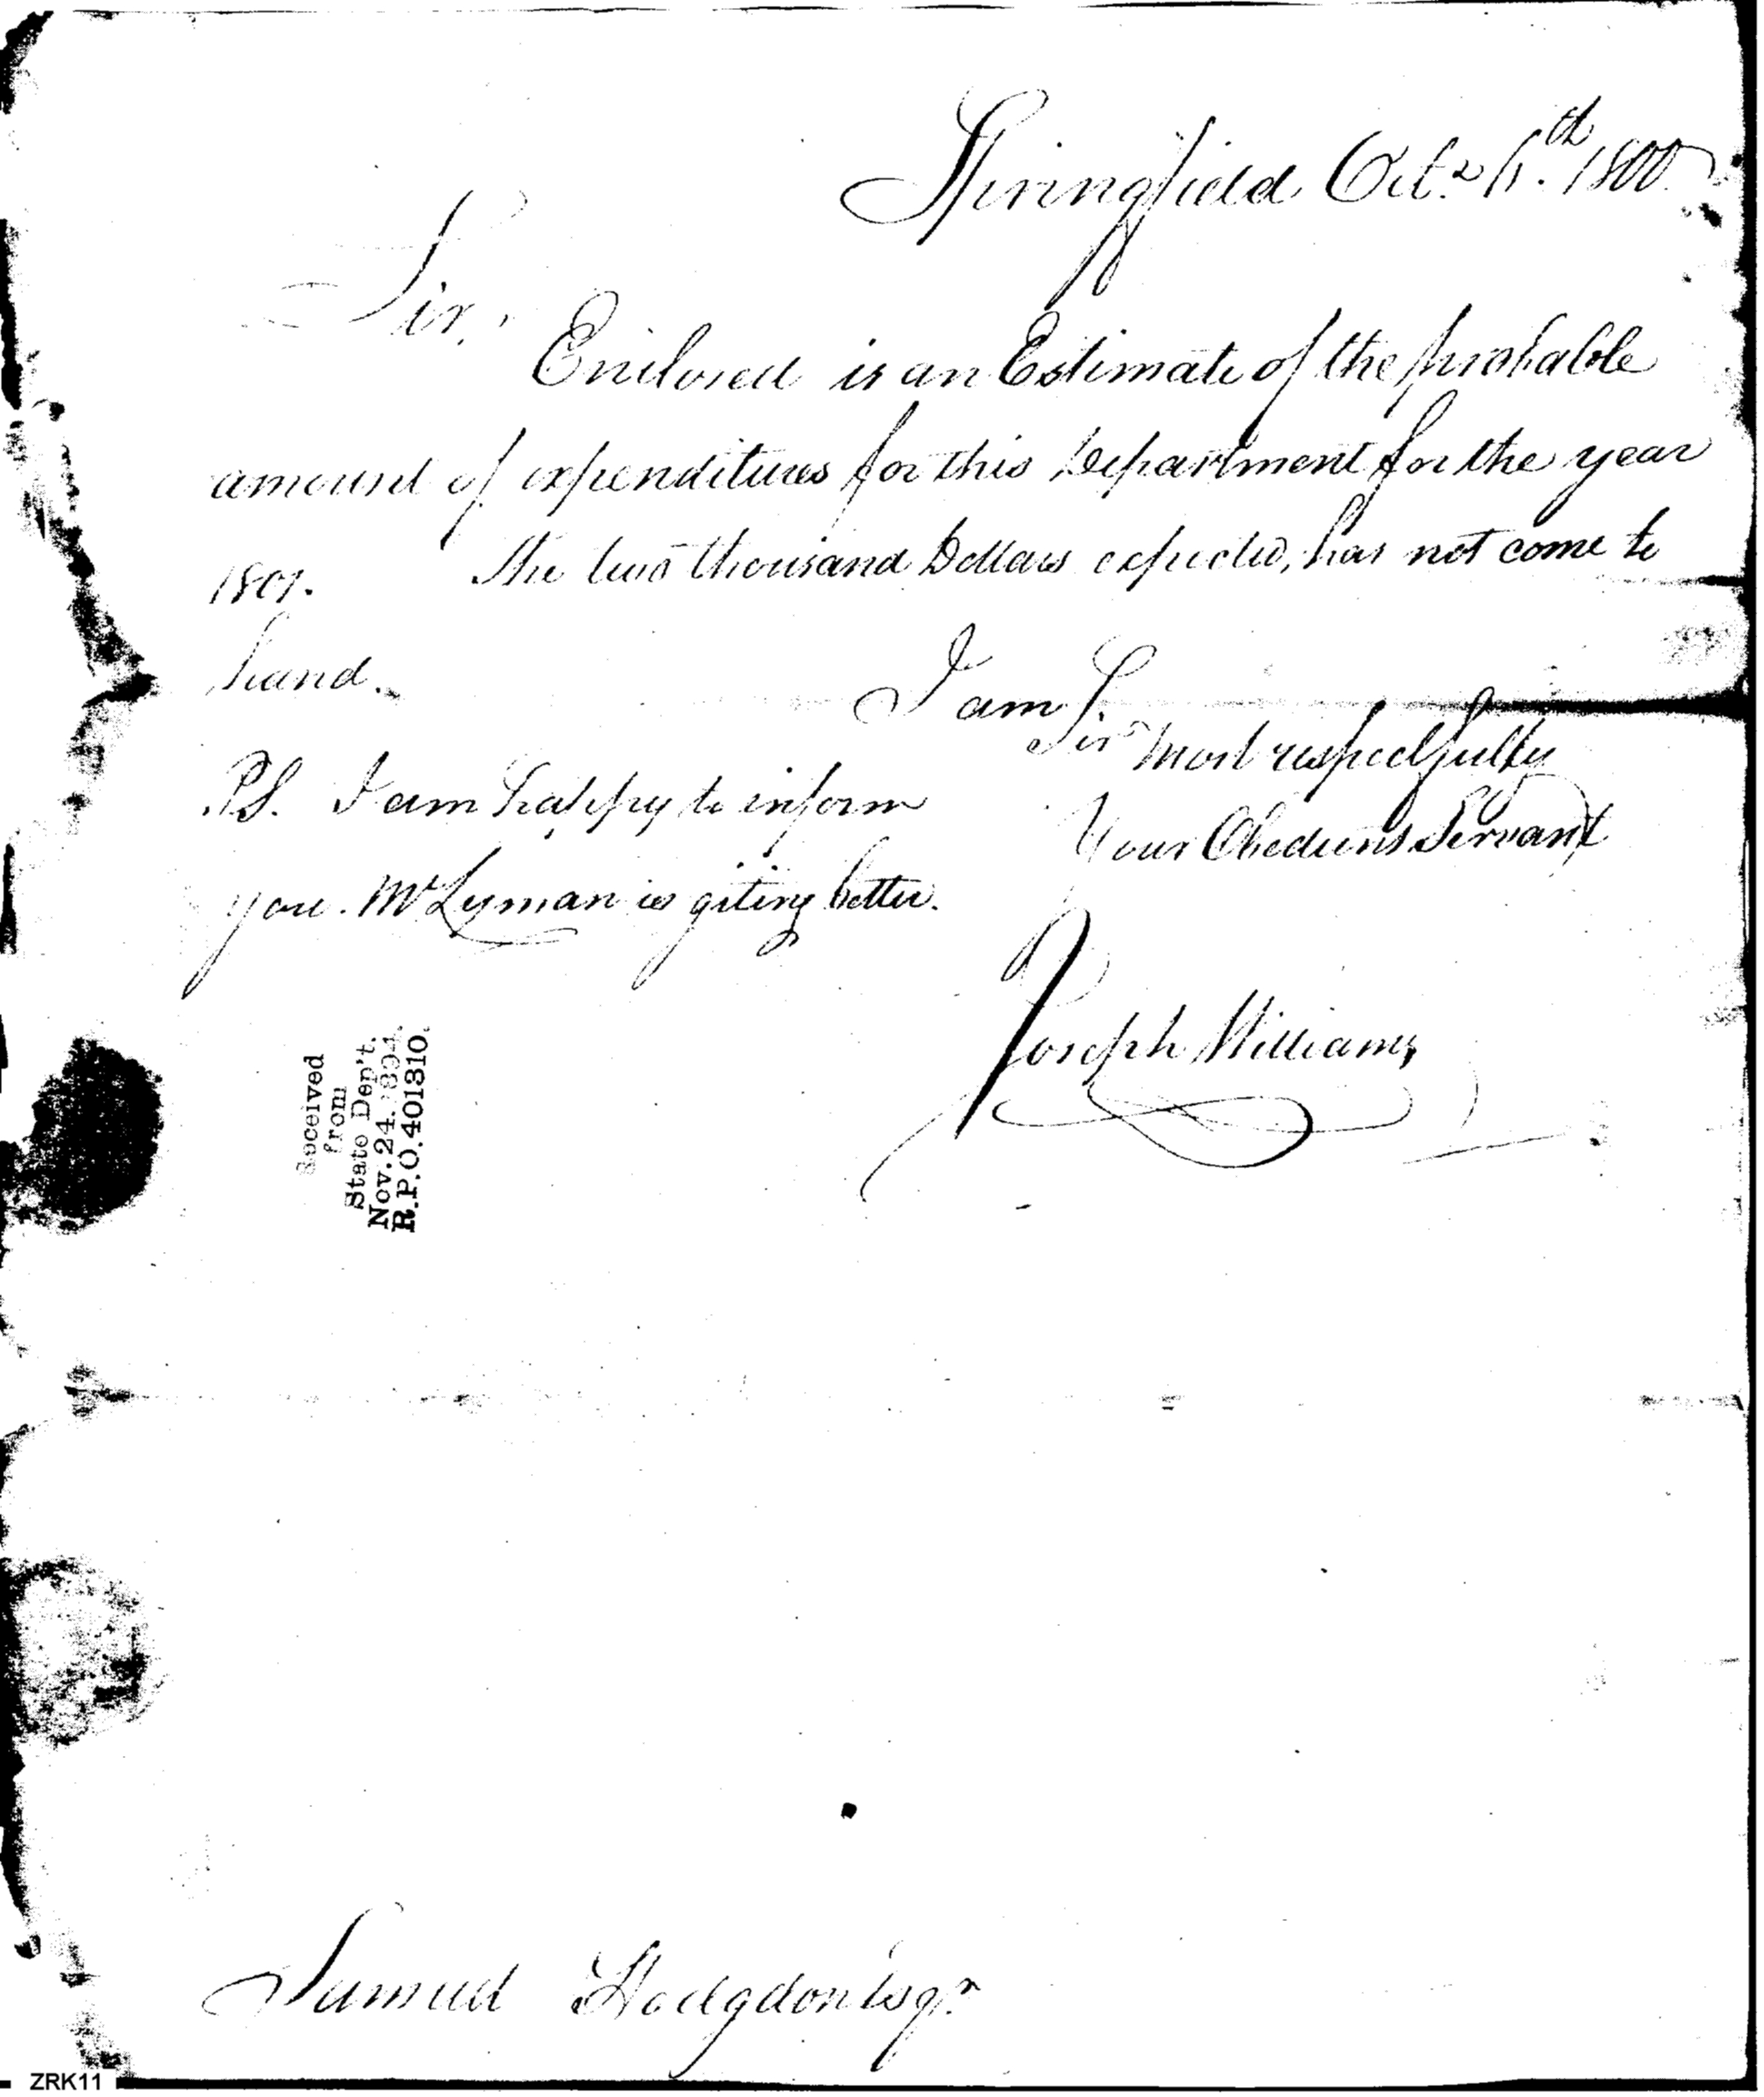 Springfield Octr 6th 1800
Sir,
Enclosed is an Estimate of the probable
amount of expenditures for this Department for the year
1801. The two thousand Dollars expected, has not come to
hand.
I am Sir
most respectfully
Your Obedient Servant
Joseph Williams
P.S. I am happy to inform
you. Mr Lyman is giting better.
Received
from
State Dep't.
Nov. 24. 1894.
R.P.O. 401310.
Samuel Hodgdon Esqr
ZRK11